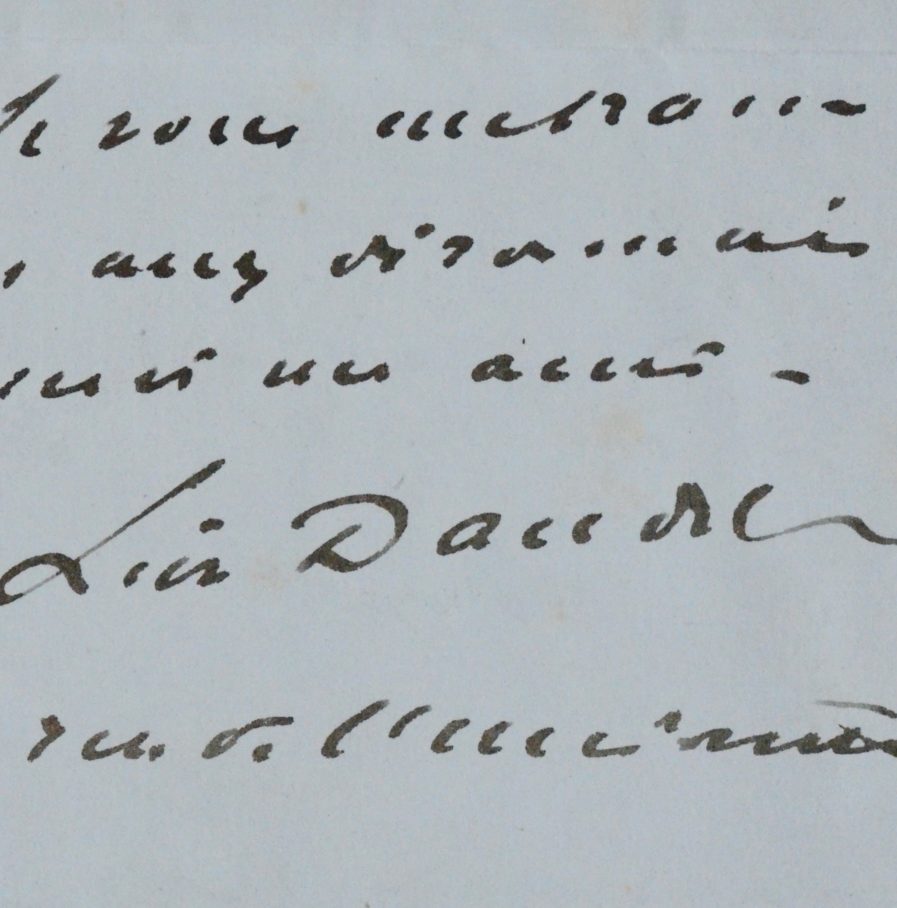 Je vous
avez désormais
un ami.
Léon Daudet
rue de l'Université